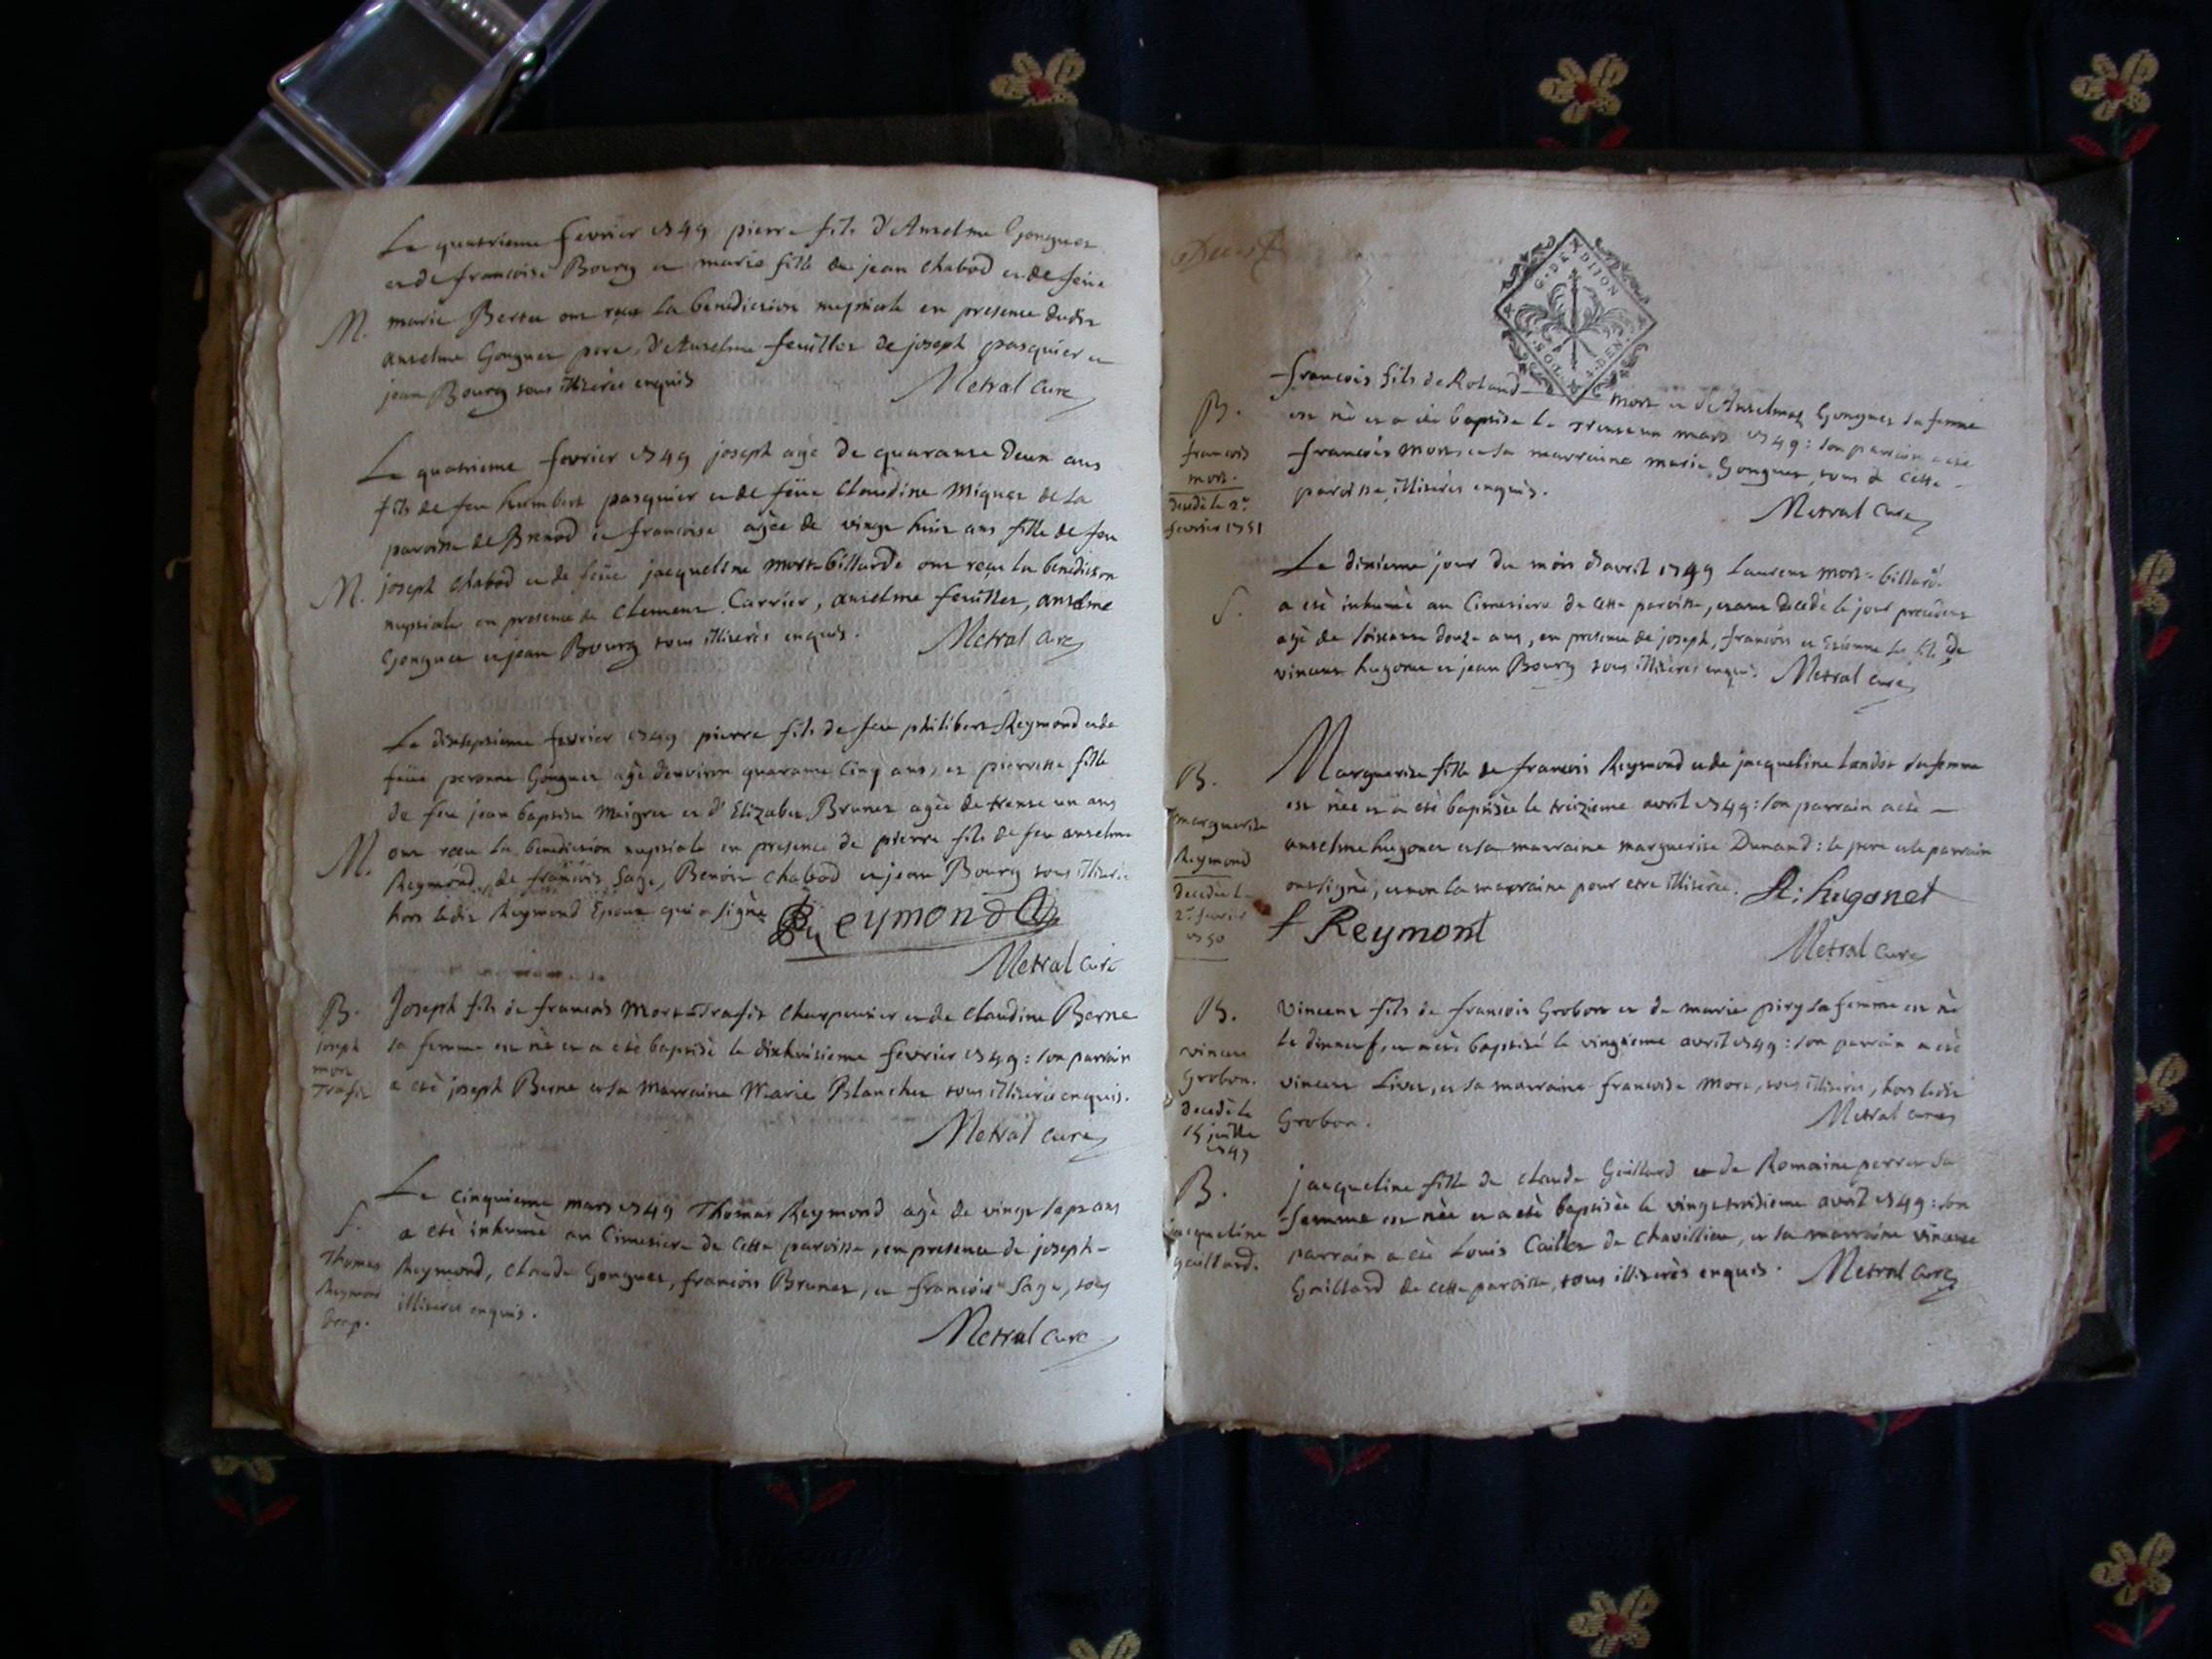 Le quatrieme fevrier 1749 pierre fils d'Anselme Gonguet
et de francoise Bourg et marie fille de jean chabod et de feüe
M. marie Bertet ont reçu la benediction nuptiale en presence dudit
anselme Gonguet pere, d'Anselme feuillet de joseph pasquier et
jean Bourg tous illiterès enquis
Metral curé
Le quatrieme fevrier 1749 joseph agè de quarante deux ans
fils de feu humbert pasquier et de feüe claudine Miguet de la
paroisse de Brenod et francoise agèe de vingt huit ans fille de feu
M. joseph chabod et de feüe jacqueline mort-billarde ont reçu la benediction
nuptiale en presence de clement Carrier, anselme feuillet, anselme
Gonguet et jean Bourg tous illiterès enquis.
Metral curé
Le dixseptieme fevrier 1749 pierre fils de feu philibert Reymond et de
feüe peronne Gonguet agè d'environ quarante cinq ans, et pierrette fille
de feu jean baptiste Maigret et d'Elizabet Brunet agèe de trente un ans
M. ont reçu la benediction nuptiale en presence de pierre fils de feu anselme
Reymond, de francois Sage, Benoit chabod et jean Bourg tous illiterès
hors ledit Reymond Epoux qui a signè
Reymond
Metral curé
B. Joseph fils de francois Mort-Trafit charpentier et de claudine Berne
joseph
mort
Trafit
sa femme est nè et a etè baptisè le dixhuitieme fevrier 1749: son parrain
a etè joseph Berne et sa marraine Marie Blanchet tous illiterès enquis.
Metral curé
Le cinquieme mars 1749 Thomas Reymond agè de vingt sept ans
S.
Thomas
Reymond
a etè inhumè au Cimetiere de cette paroisse, en presence de joseph
Reymond, claude Gonguet, francois Brunet, et francois Sage, tous
illiterès enquis.
Metral curé
G. D'A DIJON
SOL DEN
francois fils de Roland mort et d'Anselmaz Gonguet sa femme
B.
francois
mort.
decedè le 2e
fevrier 1751
est nè et a etè baptisè le trente un mars 1749: son parrain a etè
francois Mort et sa marraine marie Gonguet, tous de cette
paroisse, illiterès enquis.
Metral curé
Le dixieme jour du mois d'avril 1749 Laurent mort-billard
S. a etè inhumè au Cimetiere de cette paroisse, etant decedè le jour precedent
agè de soixante douze ans, en presence de joseph, francois et Etienne les fils de
vincent hugonet et jean Bourg tous illiterès enquis
Metral curé
B.
marguerite
Reymond
decedèe le
2e fevrier
1750
Marguerite fille de francois Reymond et de jacqueline Landot sa femme
est nèe et a etè baptisèe le treizieme avril 1749: son parrain a etè
anselme hugonet et sa marraine marguerite Dunand: le pere et le parrain
ont signè, et non la marraine pour etre illiterèe.
A: hugonet
f Reymont
Metral curé
B.
vincent
Grobon.
decedè le
15 juillet
1749
vincent fils de francois Grobon et de marie piry sa femme est nè
le dixneuf, et a etè baptisè le vingtieme avril 1749: son parrain a etè
vincent Livet, et sa marraine francoise Mort, tous illiterès, hors ledit
Grobon.
Metral curé
B.
jacqueline
Gaillard.
jacqueline fille de claude Gaillard et de Romaine perret sa
femme est nèe et a etè baptisèe le vingt troisieme avril 1749: son
parrain a etè Louis Caillet de Chavillieu, et sa marraine vincente
Gaillard de cette paroisse, tous illiterès enquis.
Metral curé